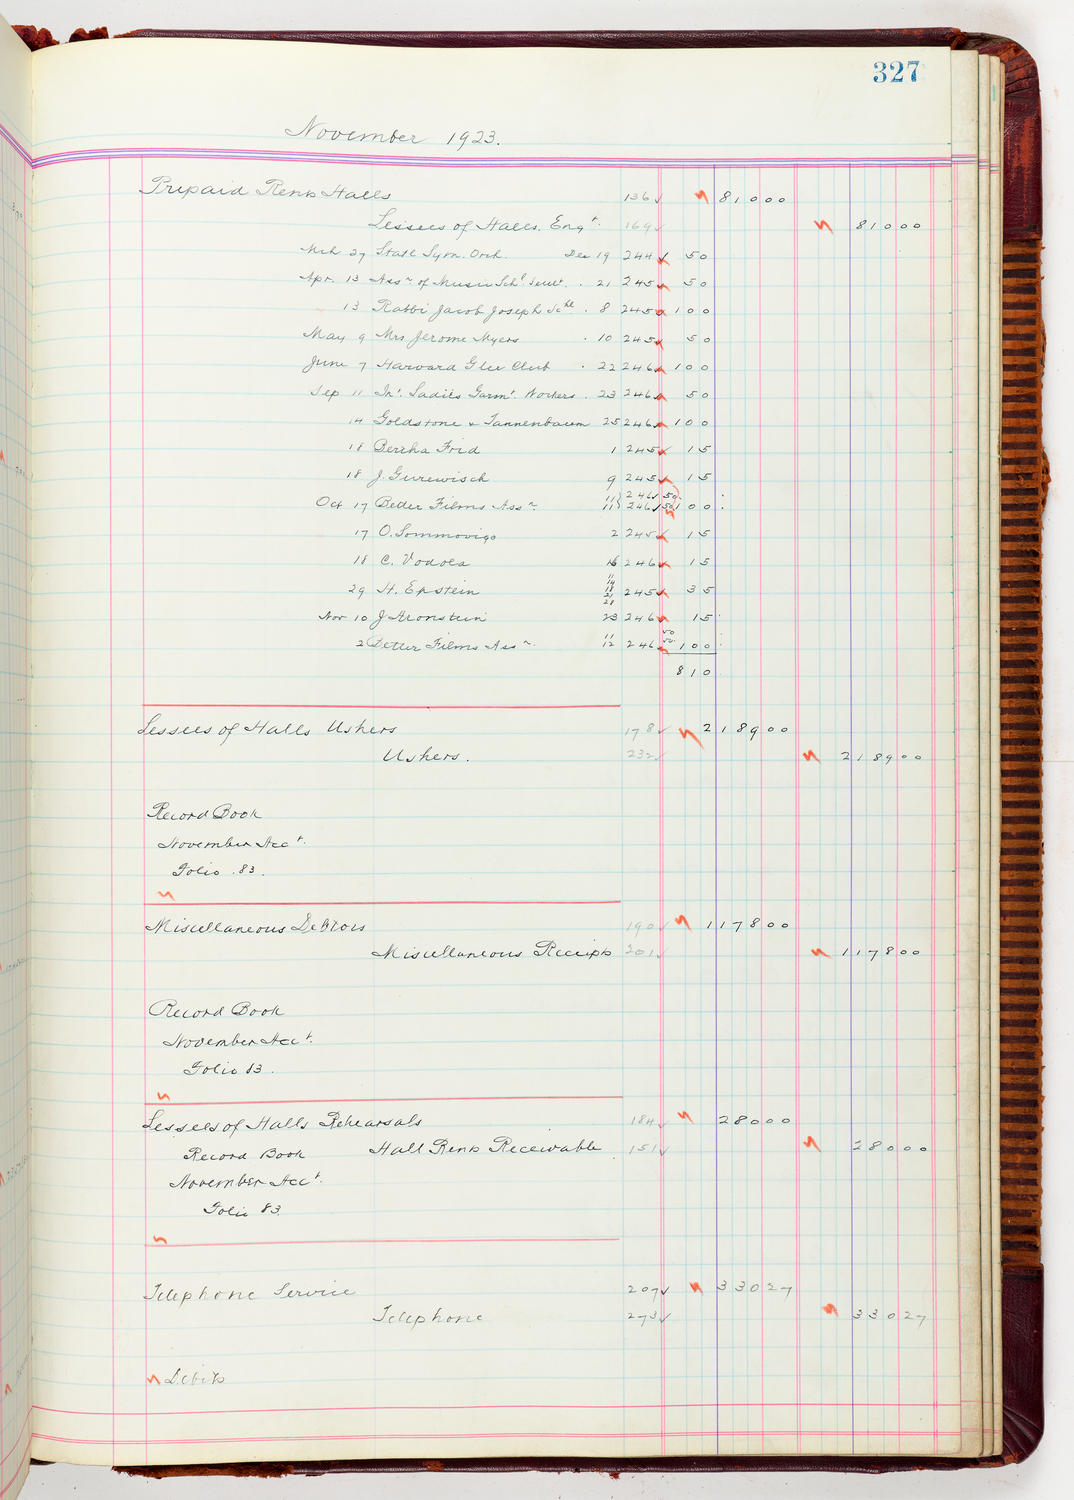 327
November 1923.
Prepaid Rents Halls 136 ✓ 81000
Lessees of Halls. Engt. 169 ✓ 81000
Mch 27 State Sym. Orch. Dec 19 244 ✓ 50
Apr. 13 Assn of Music Schl 21 245 50
13 Rabbi Jacob Joseph Schl 8 245 100
May 9 Mrs Jerome Myers 10 245 50
June 7 Harvard Glee Club 22 246 100
Sep 11 Int. Ladies Garmt. Workers 23 246 50
14 Goldstone & Tannenbaum 25 246 100
18 Bertha Frid 1 245 15
18 J. Gurewisch 9 245 15
11 246 ✓ 50
Oct 17 Better Films Assn. 11 246 ✓ 50 100
17 O. Sommovigo 2 245 15
18 C. Vodola 16 246 15
29 H. Epstein 11 14 18 21 28 245 35
Nov 10 J Aronstein 23 246 15
2 Better Films Assn. 11 12 246 50 50 100
810
Lessees of Halls Ushers 178 ✓ 218900
Ushers. 232 ✓ 218900
Record Book
November Acct.
Folio 83.
Miscellaneous Debtors 190 ✓ 117800
Miscellaneous Receipts 201 ✓ 117800
Record Book
November Acct.
Folio 83.
Lessees of Halls Rehearsals 184 ✓ 28000
Record Book Hall Rents Receivable 151 ✓ 28000
November Acct.
Folio 83
Telephone Service 207 ✓ 33027
Telephone 273 ✓ 33027
Debits